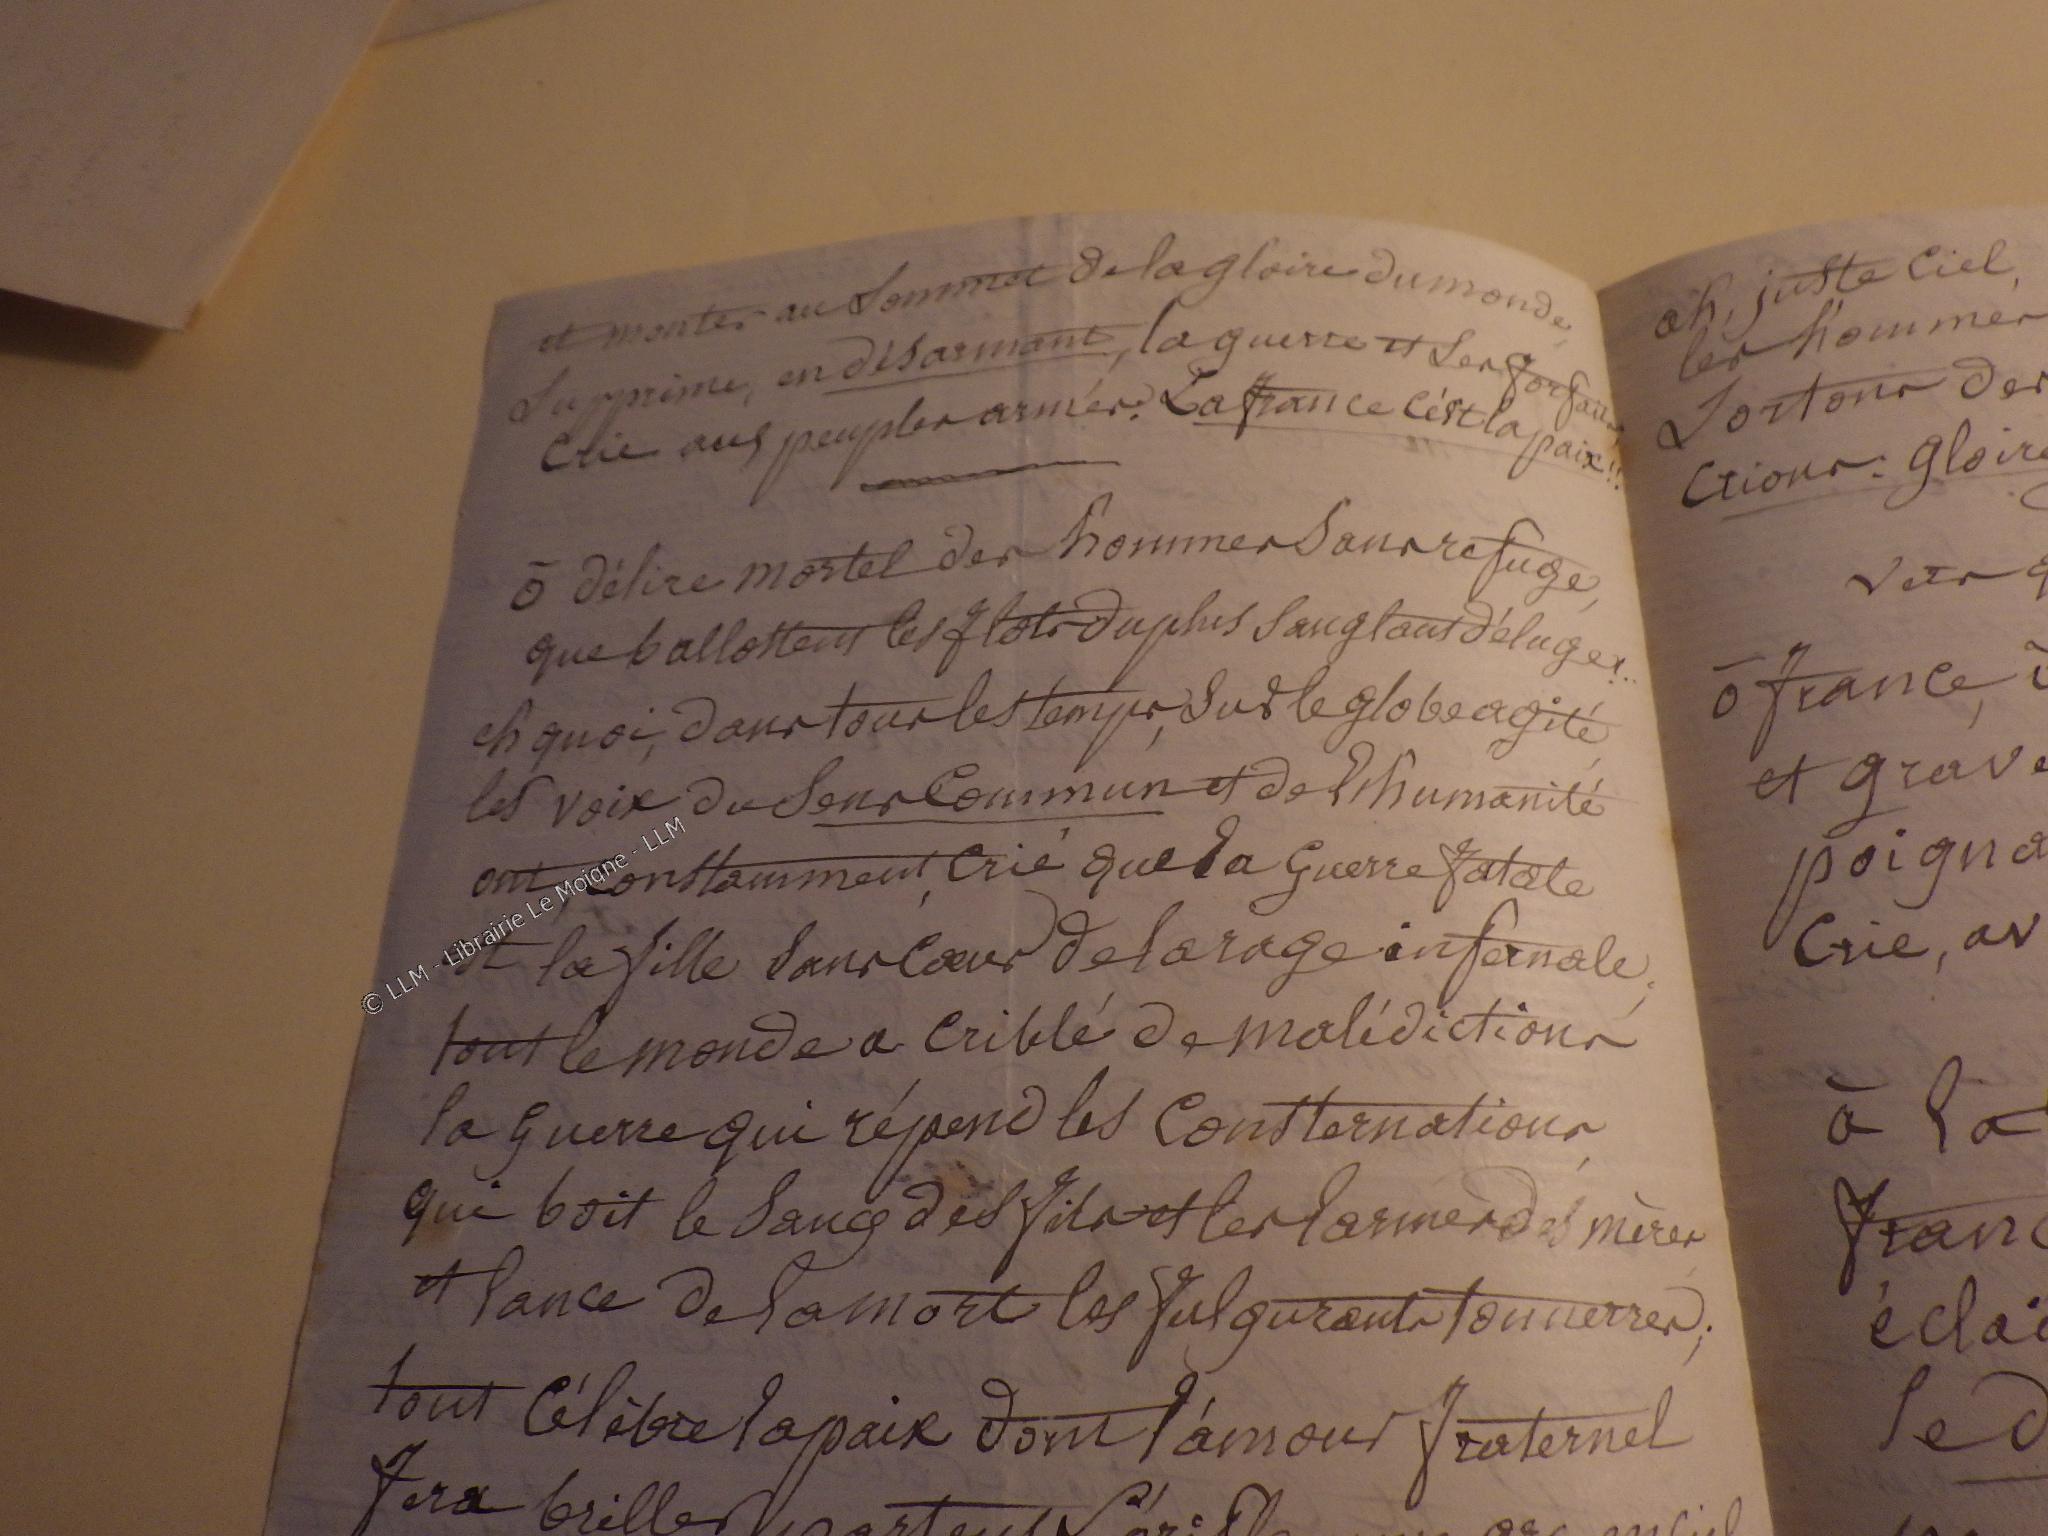 et monter au sommet de la gloire du monde,
supprime, en désarmant, la guerre et ses forfaits,
crie aux peuples armés: La france c'est la paix!!!
ô délire mortel des hommes sans refuge,
que ballottent les flots du plus sanglant déluge!..
eh quoi, dans tous les temps, sur le globe agité,
les voix du sens commun et de l'humanité
ont, constamment, crié que la guerre fatale
est la fille sans cœur de la rage infernale;
tout le monde a criblé de malédictions
la guerre qui répend les consternations,
qui boit le sang des fils et les larmes des mères,
et lance de la mort les fulgurants tonnerres;
tout célèbre la paix dont l'amour fraternel
fera briller partout arc en ciel
oh, juste ciel,
les hommes
sortons des
crions: gloire
vers
ô france, ô
et grave
poigna
crie, av
à la
franc
éclai
le d
© LLM - Librairie Le Moigne - LLM